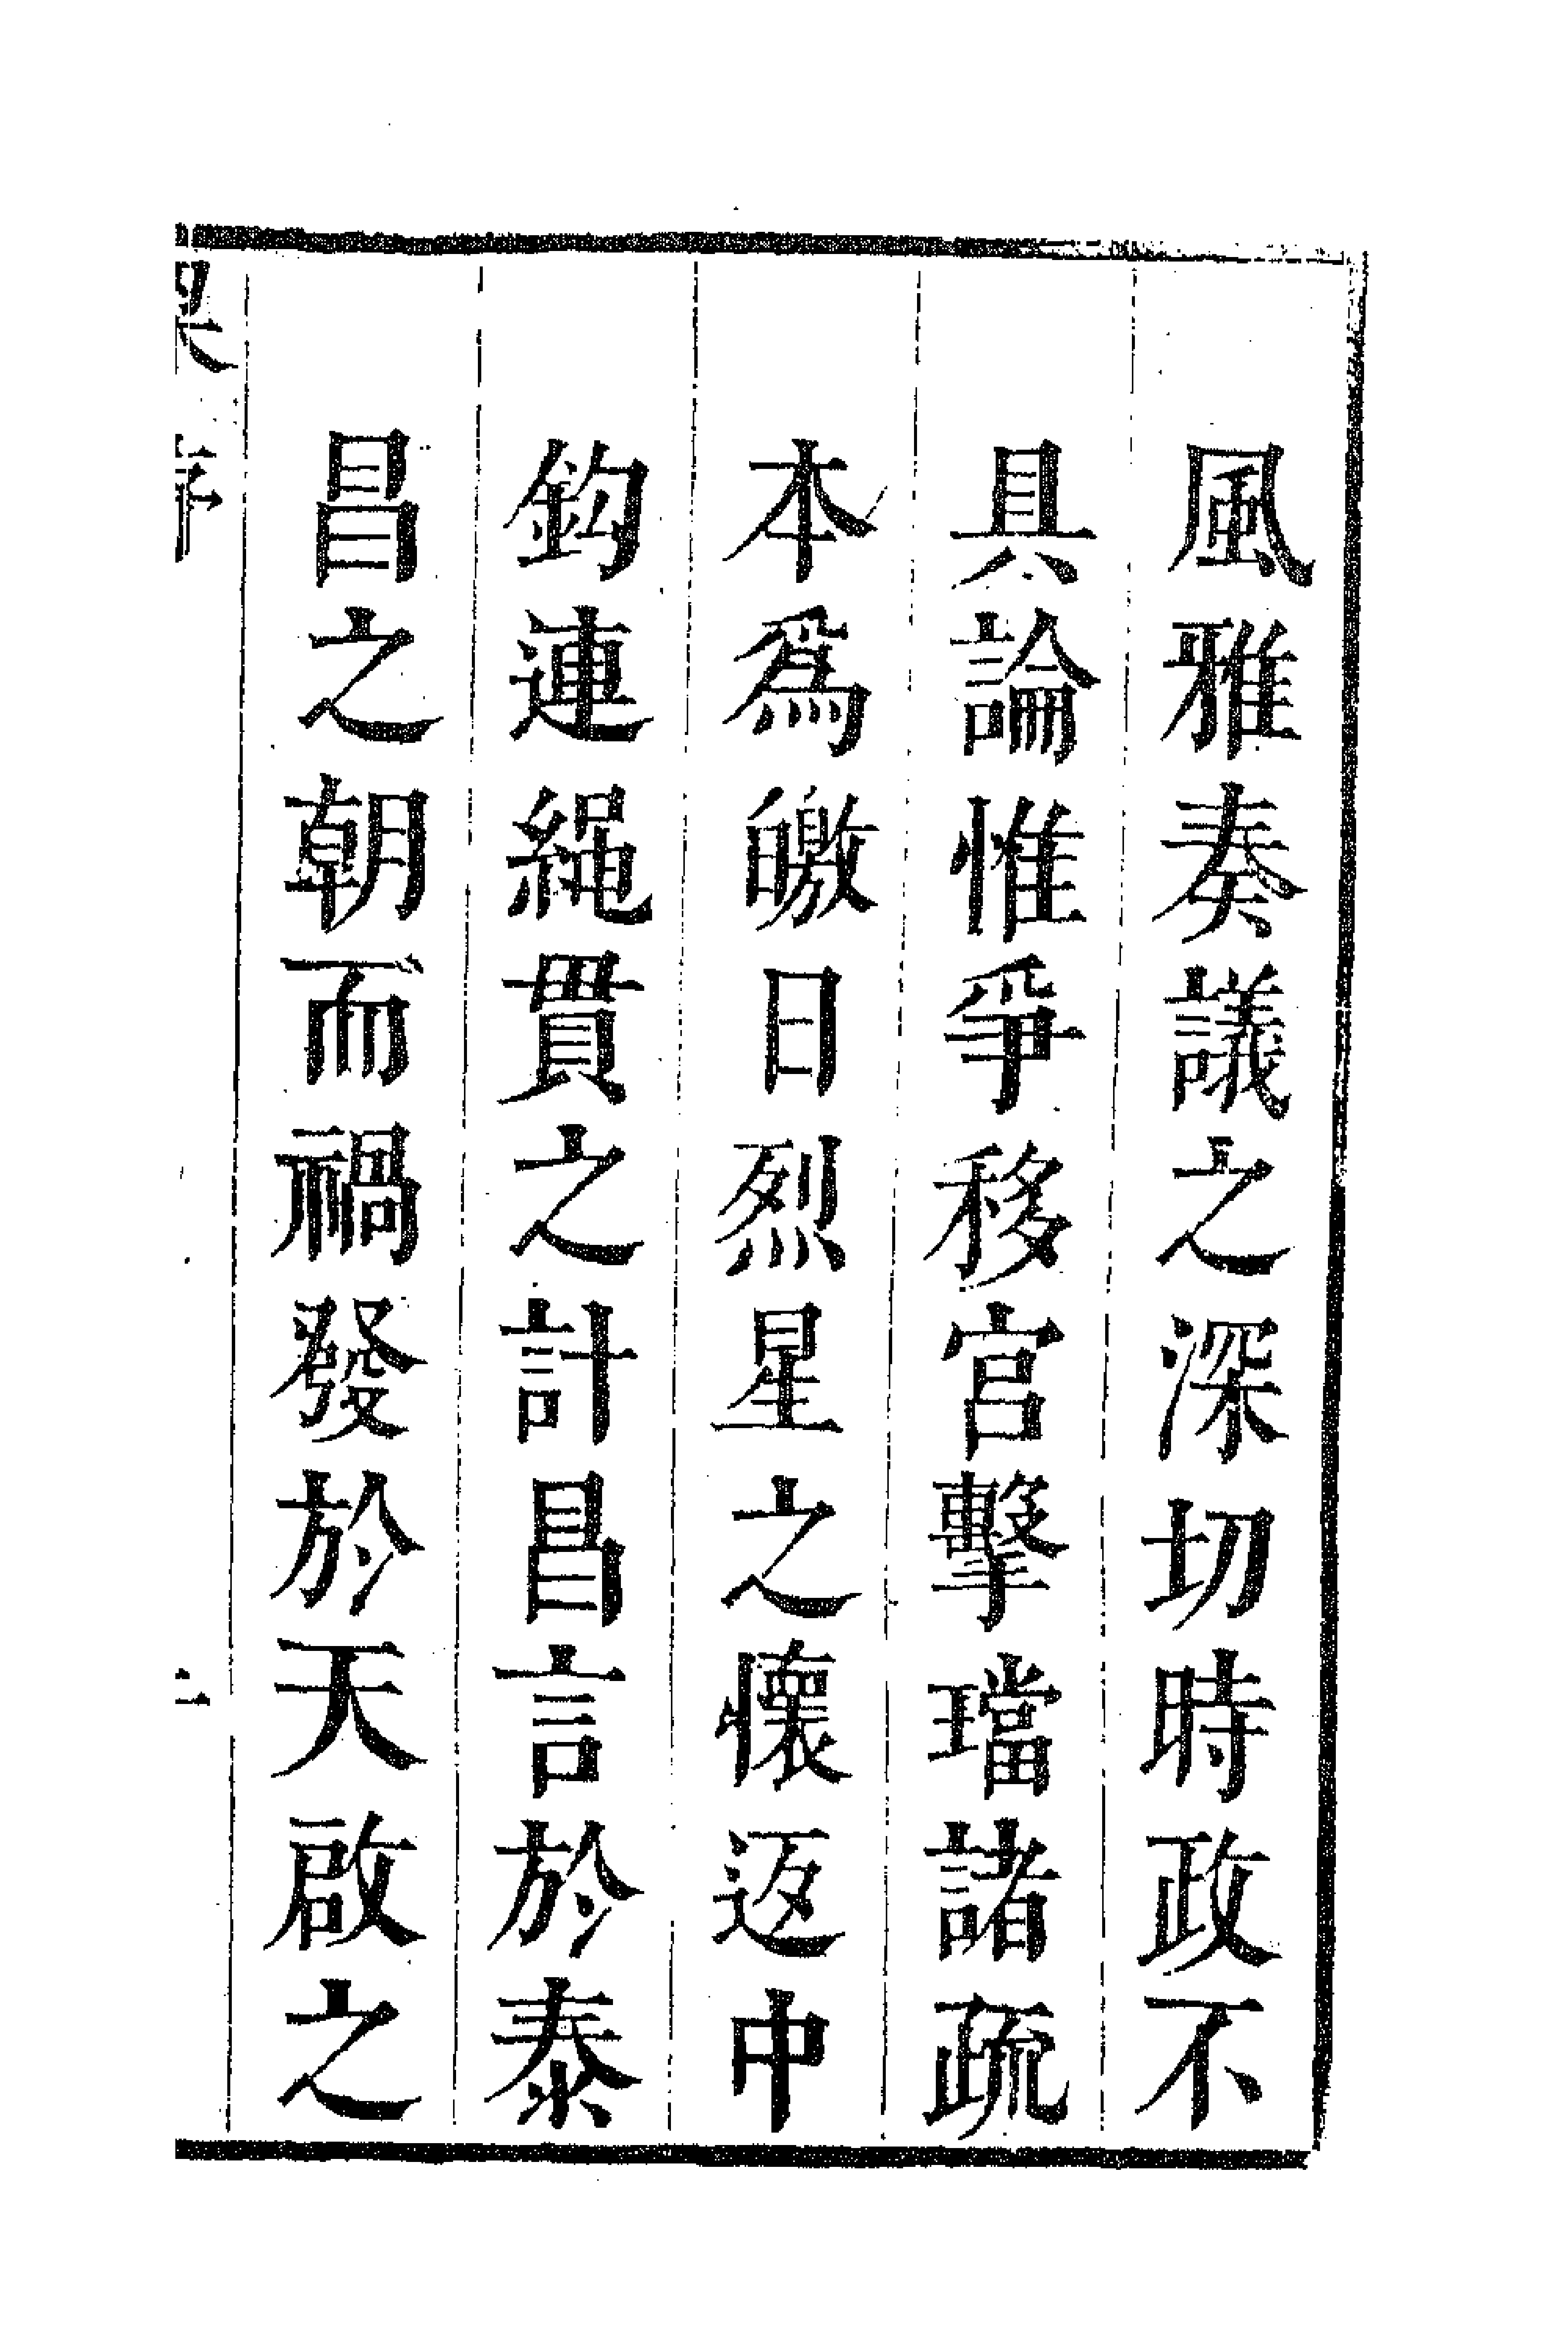 風雅奏議之深切時政不
具論惟爭移宮擊璫諸疏
本爲皦日烈星之懷返中
鈎連繩貫之計昌言於泰
昌之朝而禍發於天啟之
序